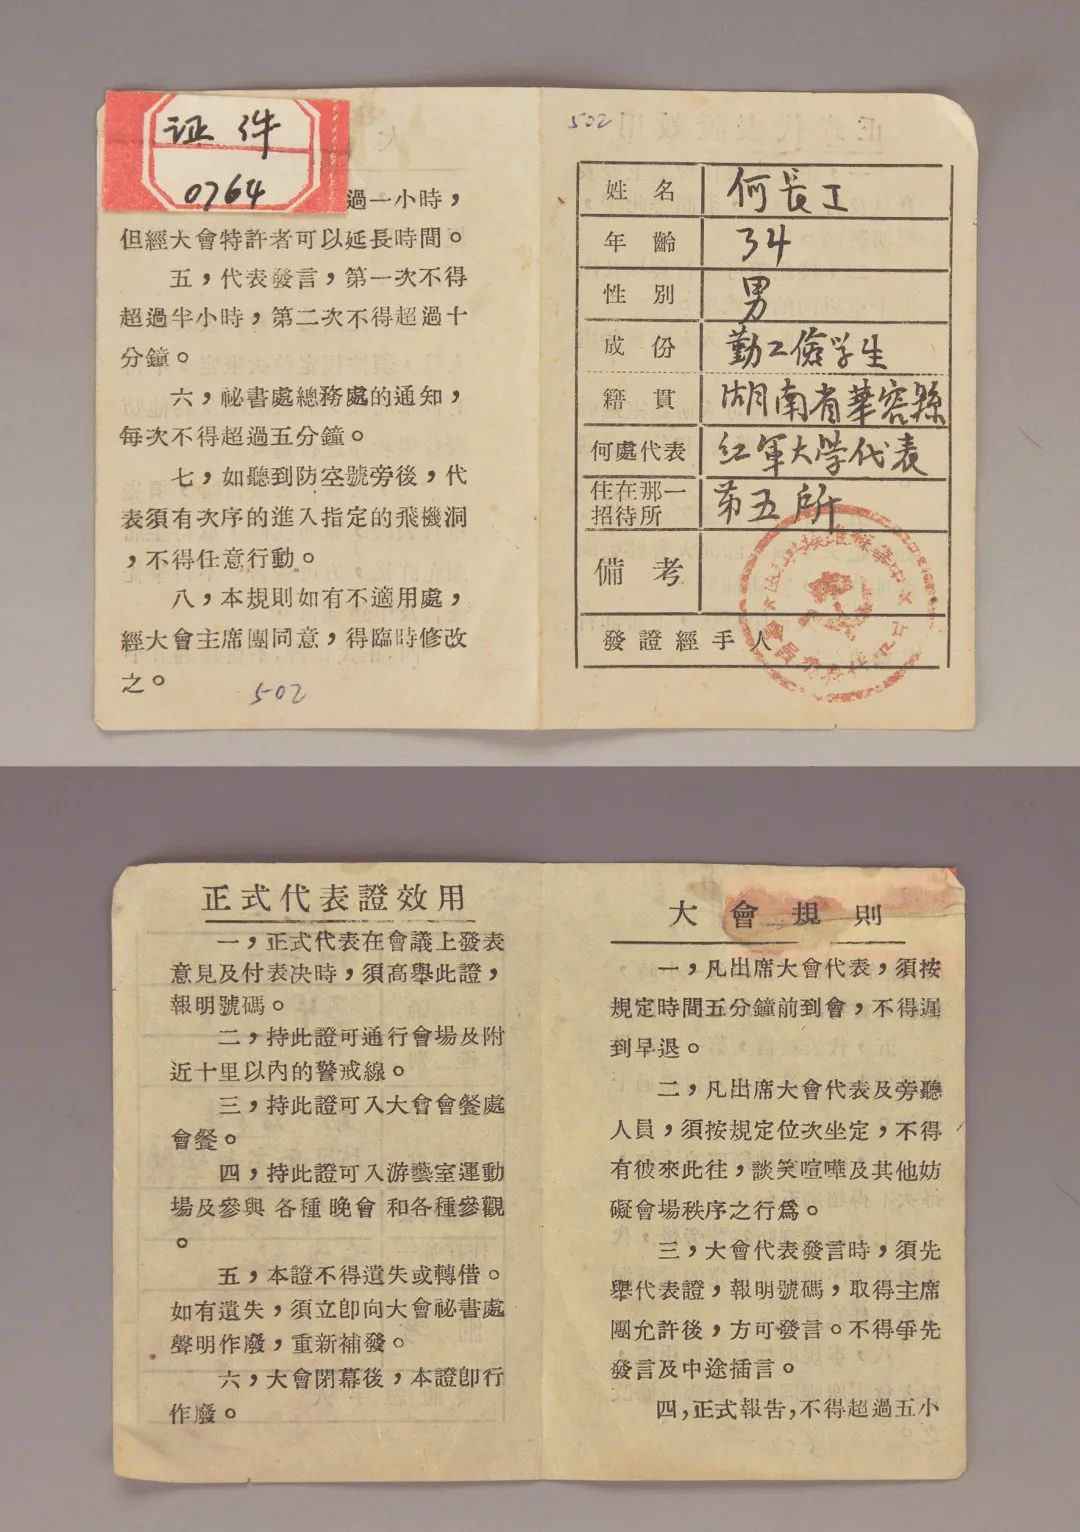 证件
0764
大
過一小時，
但經大會特許者可以延長時間。
五，代表發言，第一次不得
超過半小時，第二次不得超過十
分鐘。
六，祕書處總務處的通知，
每次不得超過五分鐘。
七，如聽到防空號旁後，代
表須有次序的進入指定的飛機洞
，不得任意行動。
八，本規則如有不適用處，
經大會主席團同意，得臨時修改
之。
502
502
姓名 何長工
年齡 34
性別 男
成份 勤工儉学生
籍貫 湖南省華容縣
何處代表 红軍大学代表
住在那一
招待所 第五所
備考
發證經手人
正式代表證效用
一，正式代表在會議上發表
意見及付表決時，須高舉此證，
報明號碼。
二，持此證可通行會場及附
近十里以內的警戒線。
三，持此證可入大會會餐處
會餐。
四，持此證可入游藝室運動
場及參與各種晚會和各種參觀
。
五，本證不得遺失或轉借。
如有遺失，須立卽向大會祕書處
聲明作廢，重新補發。
六，大會閉幕後，本證卽行
作廢。
大會規則
一，凡出席大會代表，須按
規定時間五分鐘前到會，不得遲
到早退。
二，凡出席大會代表及旁聽
人員，須按規定位次坐定，不得
有彼來此往，談笑喧嘩及其他妨
礙會場秩序之行爲。
三，大會代表發言時，須先
舉代表證，報明號碼，取得主席
團允許後，方可發言。不得爭先
發言及中途插言。
四，正式報告，不得超過五小